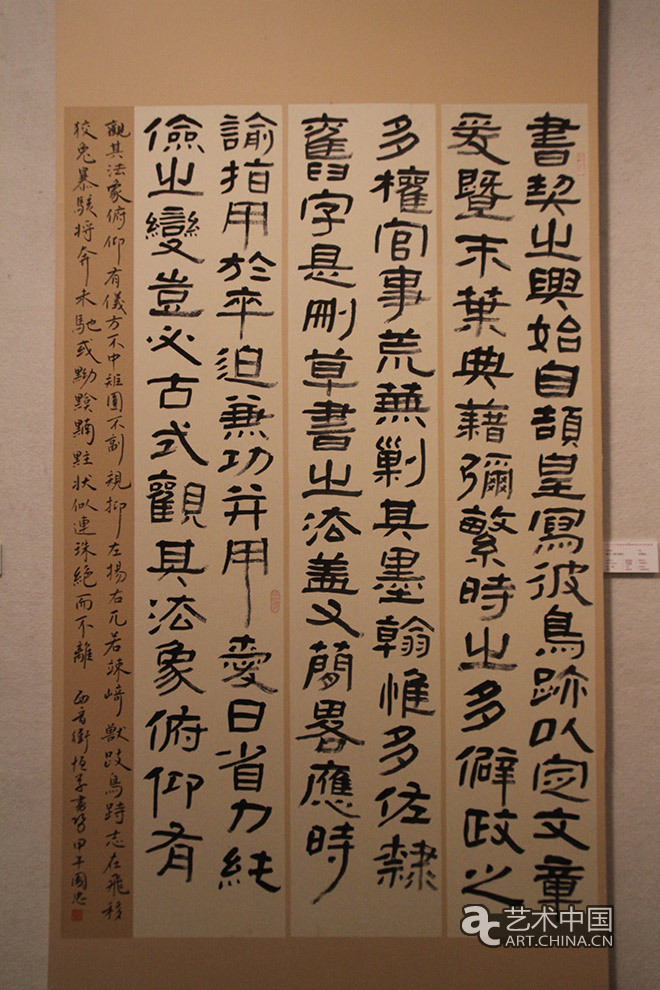 書契之興始自頡皇寫彼鳥跡以定文章
爰暨末葉典藉彌繁時之多僻政之
多權官事荒蕪剿其墨翰惟多佐隸
舊字是刪草書之法蓋又簡畧應時
諭指用於卒迫兼功并用愛日省力純
儉之變豈必古式觀其法象俯仰有
觀其法象俯仰有儀方不中矩圓不副規抑左揚右兀若竦崎獸跂鳥跱志在飛移
狡兔暴駭将奔未馳或黝黭狀似連珠絕而不離 西晉衛恆草書勢 甲午國忠
艺术中国
ART.CHINA.CN